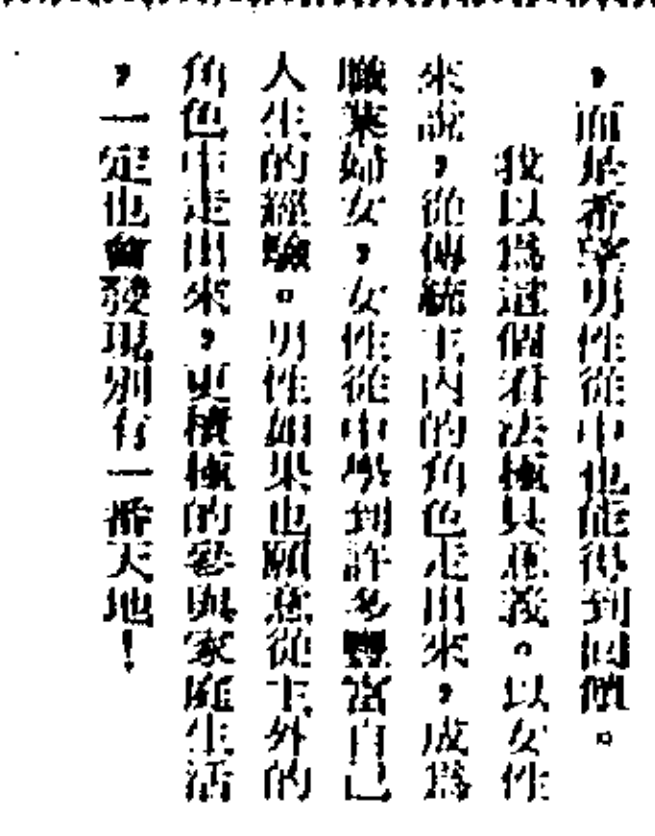 ，而是希望男性從中也能得到回饋。
我以為這個看法極具意義。以女性
來說，從傳統主內的角色走出來，成為
職業婦女，女性從中學到許多豐富自己
人生的經驗。男性如果也願意從主外的
角色中走出來，更積極的參與家庭生活
，一定也會發現別有一番天地！